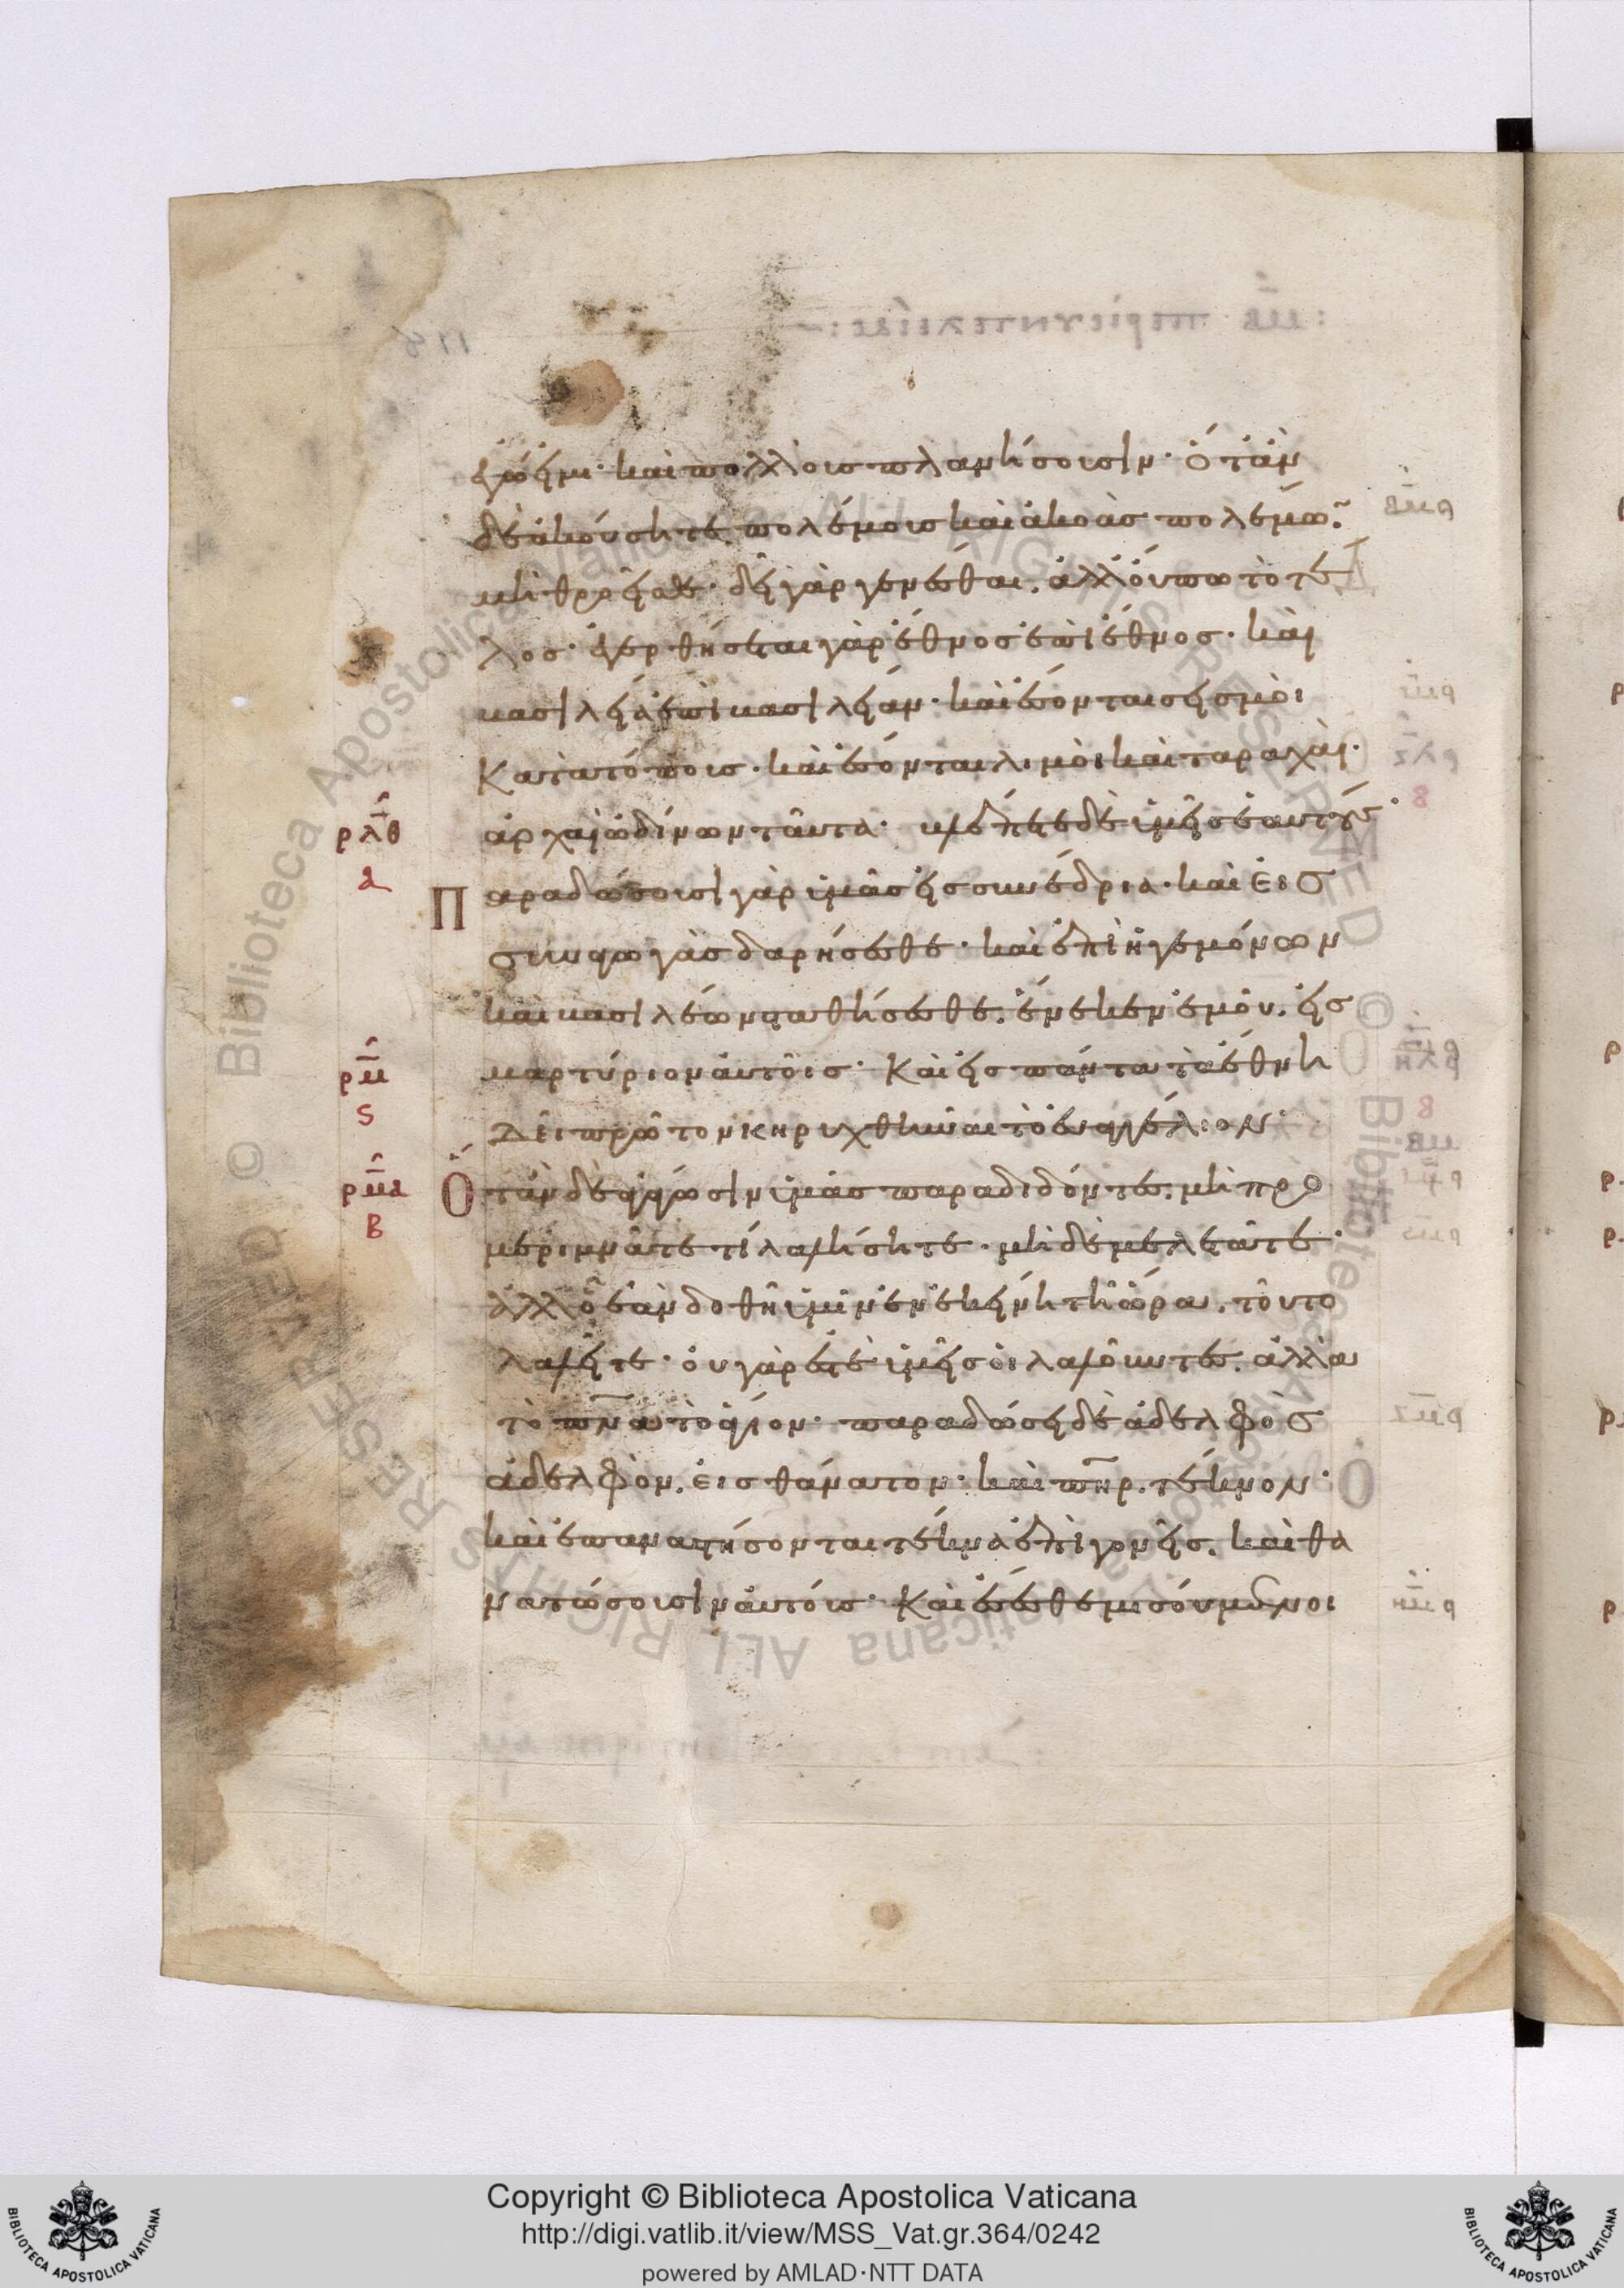 ἐγώ εἰμι· καὶ πολλοὺς πλανήσουσιν· ὅταν
δὲ ἀκούσητε πολέμους καὶ ἀκοὰς πολέμων
μὴ θροεῖσθε· δεῖ γὰρ γενέσθαι. ἀλλ' οὔπω τὸ τέ
λος· ἐγερθήσεται γὰρ ἔθνος ἐπὶ ἔθνος· καὶ
βασιλεία ἐπὶ βασιλείαν· καὶ ἔσονται σεισμοὶ
κατὰ τόπους· καὶ ἔσονται λιμοὶ καὶ ταραχαί·
ρλθ
α
ἀρχαὶ ὠδίνων ταῦτα· βλέπετε δὲ ὑμεῖς ἑαυτούς·
Παραδώσουσι γὰρ ὑμᾶς εἰς συνέδρια· καὶ εἰς
συναγωγὰς δαρήσεσθε· καὶ ἐπὶ ἡγεμόνων
καὶ βασιλέων σταθήσεσθε. ἕνεκεν ἐμοῦ. εἰς
ρμ
ς
μαρτύριον αὐτοῖς· Καὶ εἰς πάντα τὰ ἔθνη
Δεῖ πρῶτον κηρυχθῆναι τὸ εὐαγγέλιον·
ρμα
β
Ὅταν δὲ ἀγάγωσιν ὑμᾶς παραδιδόντες. μὴ προ
μεριμνᾶτε τί λαλήσητε· μὴ δὲ μελετᾶτε·
ἀλλ' ὃ ἐὰν δοθῇ ὑμῖν ἐν ἐκείνῃ τῇ ὥρα. τοῦτο
λαλεῖτε· οὐ γάρ ἐστε ὑμεῖς οἱ λαλοῦντες. ἀλλὰ
τὸ πνα τὸ ἅγιον· παραδώσει δὲ ἀδελφὸς
ἀδελφὸν. εἰς θάνατον· καὶ πηρ. τέκνον·
καὶ ἐπαναστήσονται τέκνα ἐπὶ γονεῖς. καὶ θα
νατώσουσιν αὐτούς· Καὶ ἔσεσθε μισούμενοι
Copyright © Biblioteca Apostolica Vaticana
http://digi.vatlib.it/view/MSS_Vat.gr.364/0242
powered by AMLAD·NTT DATA